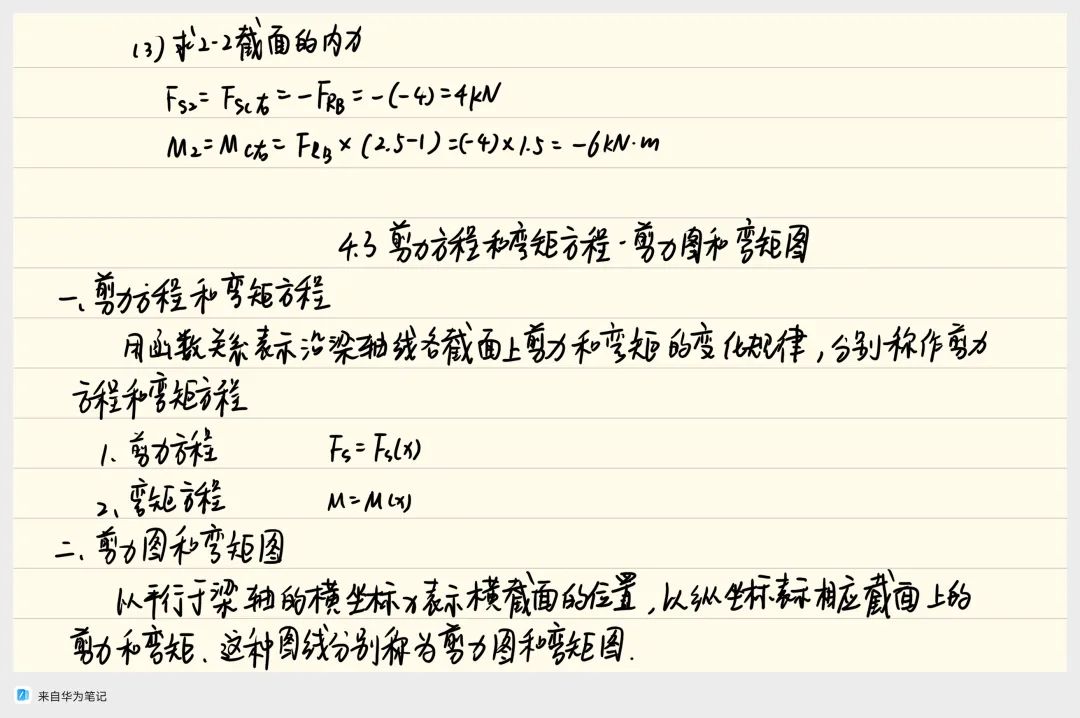 (3) 求2-2截面的内力
Fs2 = FSC右 = -FRB = -(-4) = 4kN
M2 = MC右 = FRB × (2.5-1) = (-4) × 1.5 = -6kN·m
4.3 剪力方程和弯矩方程·剪力图和弯矩图
一、剪力方程和弯矩方程
用函数关系表示沿梁轴线各截面上剪力和弯矩的变化规律，分别称作剪力
方程和弯矩方程
1、剪力方程 Fs = Fs(x)
2、弯矩方程 M = M(x)
二、剪力图和弯矩图
以平行于梁轴的横坐标x表示横截面的位置，以纵坐标表示相应截面上的
剪力和弯矩、这种图线分别称为剪力图和弯矩图.
来自华为笔记